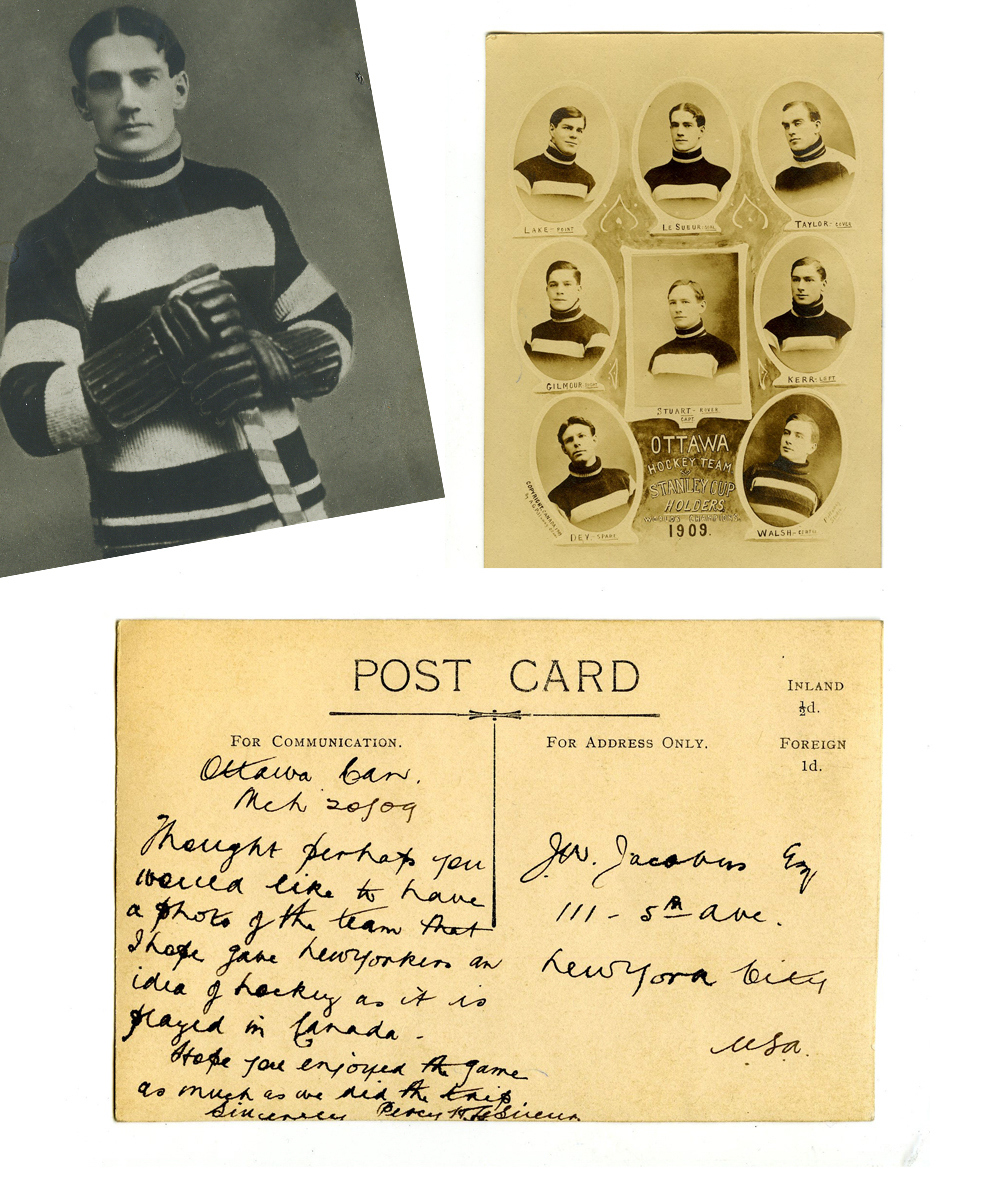 LAKE - POINT
LE SUEUR - GOAL
TAYLOR - COVER
GILMOUR RIGHT
STUART - ROVER
CAPT.
KERR - LEFT
OTTAWA
HOCKEY TEAM
STANLEY CUP
HOLDERS
WORLD'S CHAMPIONS
1909.
COPYRIGHT, CANADA 1909
DEY. - SPARE
WALSH -
POST CARD
INLAND
½d.
FOREIGN
1d.
FOR COMMUNICATION.
FOR ADDRESS ONLY.
Ottawa Can.
Mch 20/09
Thought perhaps you
would like to have
a photo of the team that
I hope gave NewYorkers an
idea of hockey as it is
played in Canada.
Hope you enjoyed the game
as much as we did the trip
Sincerely Percy H. LeSueur
J.W. Jacobus Esq
111 - 5th Ave.
New York City
U.S.A.